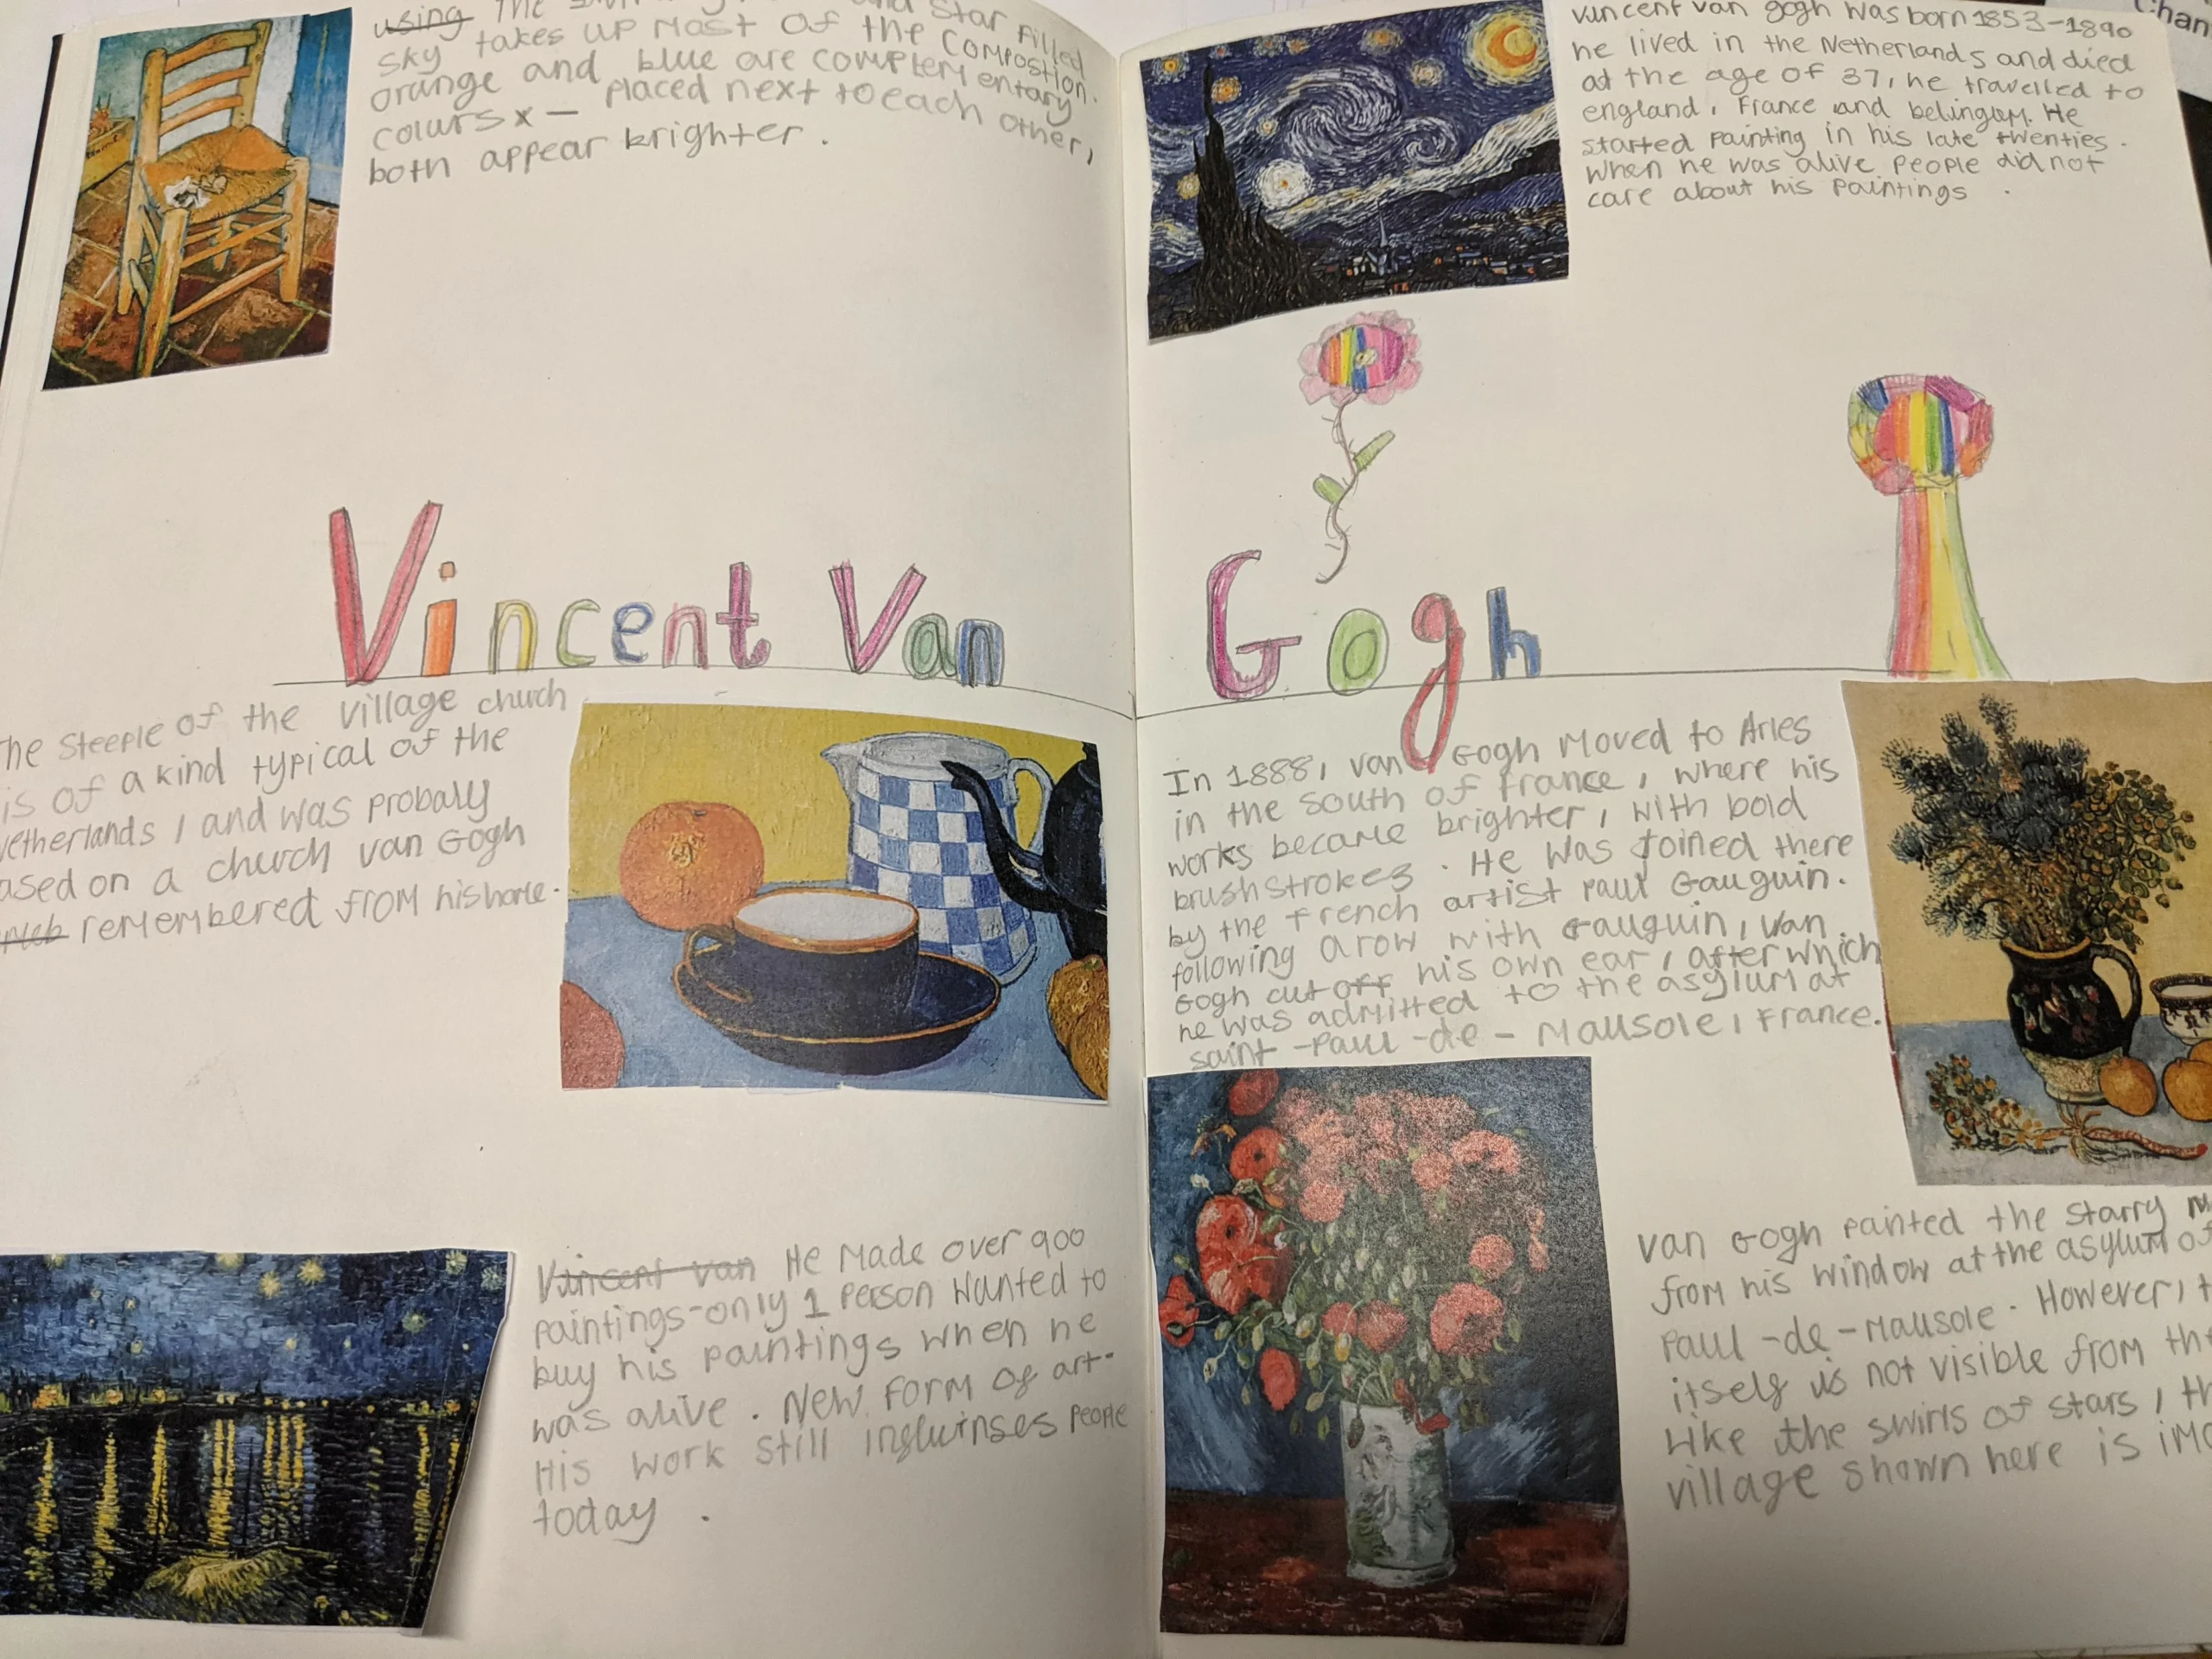 using The
star filled
sky takes up most of the compostion.
orange and blue are complementary
colurs x — placed next to each other,
both appear brighter.
Vincent Van
The steeple of the village church
is of a kind typical of the
netherlands, and was probaly
ased on a church van Gogh
remembered from his home.
Vincent van He made over 900
paintings-only 1 person wanted to
buy his paintings when he
was alive. New form of art-
His work still influinses people
today.
Chan
vincent van gogh was born 1853-1890
he lived in the Netherlands and died
at the age of 37, he travelled to
england, france and belingum. He
started painting in his late twenties.
when he was alive people did not
care about his paintings.
Gogh
In 1888, van Gogh moved to Arles
in the south of france, where his
works became brighter, with bold
brush strokes. He was joined there
by the french artist paul Gauguin.
following a row with Gauguin, Van
Gogh cut off his own ear, after which
he was admitted to the asylum at
saint-Paul-de-Mausole, France.
Van Gogh painted the starry
from his window at the asylum of
Paul-de-Mausole. However, t
itself is not visible from th
Like the swirls of stars, th
village shown here is ima